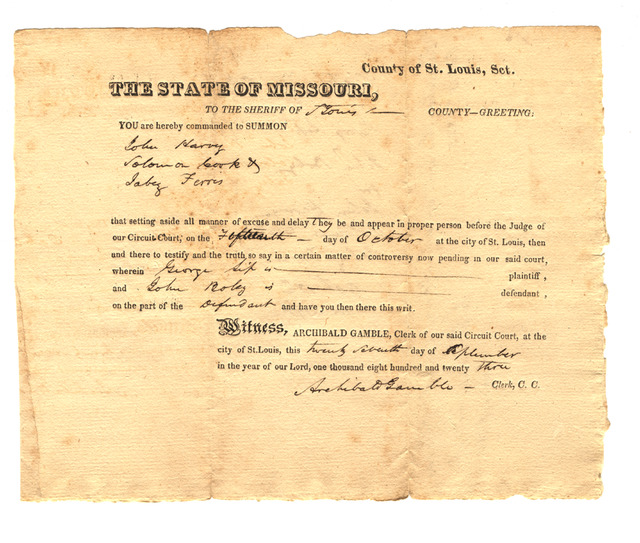 County of St. Louis, Sct.
THE STATE OF MISSOURI,
TO THE SHERIFF OF St Louis COUNTY—GREETING:
YOU are hereby commanded to SUMMON
John Harvey
Solomon Cook &
Jabez Ferris
that setting aside all manner of excuse and delay they be and appear in proper person before the Judge of
our Circuit Court, on the day of October at the city of St. Louis, then
and there to testify and the truth so say in a certain matter of controversy now pending in our said court,
wherein George Sip is plaintiff,
and John is defendant,
on the part of the Defendant and have you then there this writ.
Witness, ARCHIBALD GAMBLE, Clerk of our said Circuit Court, at the
city of St. Louis, this twenty seventh day of September
in the year of our Lord, one thousand eight hundred and twenty three
Archibald Gamble — Clerk, C. C.